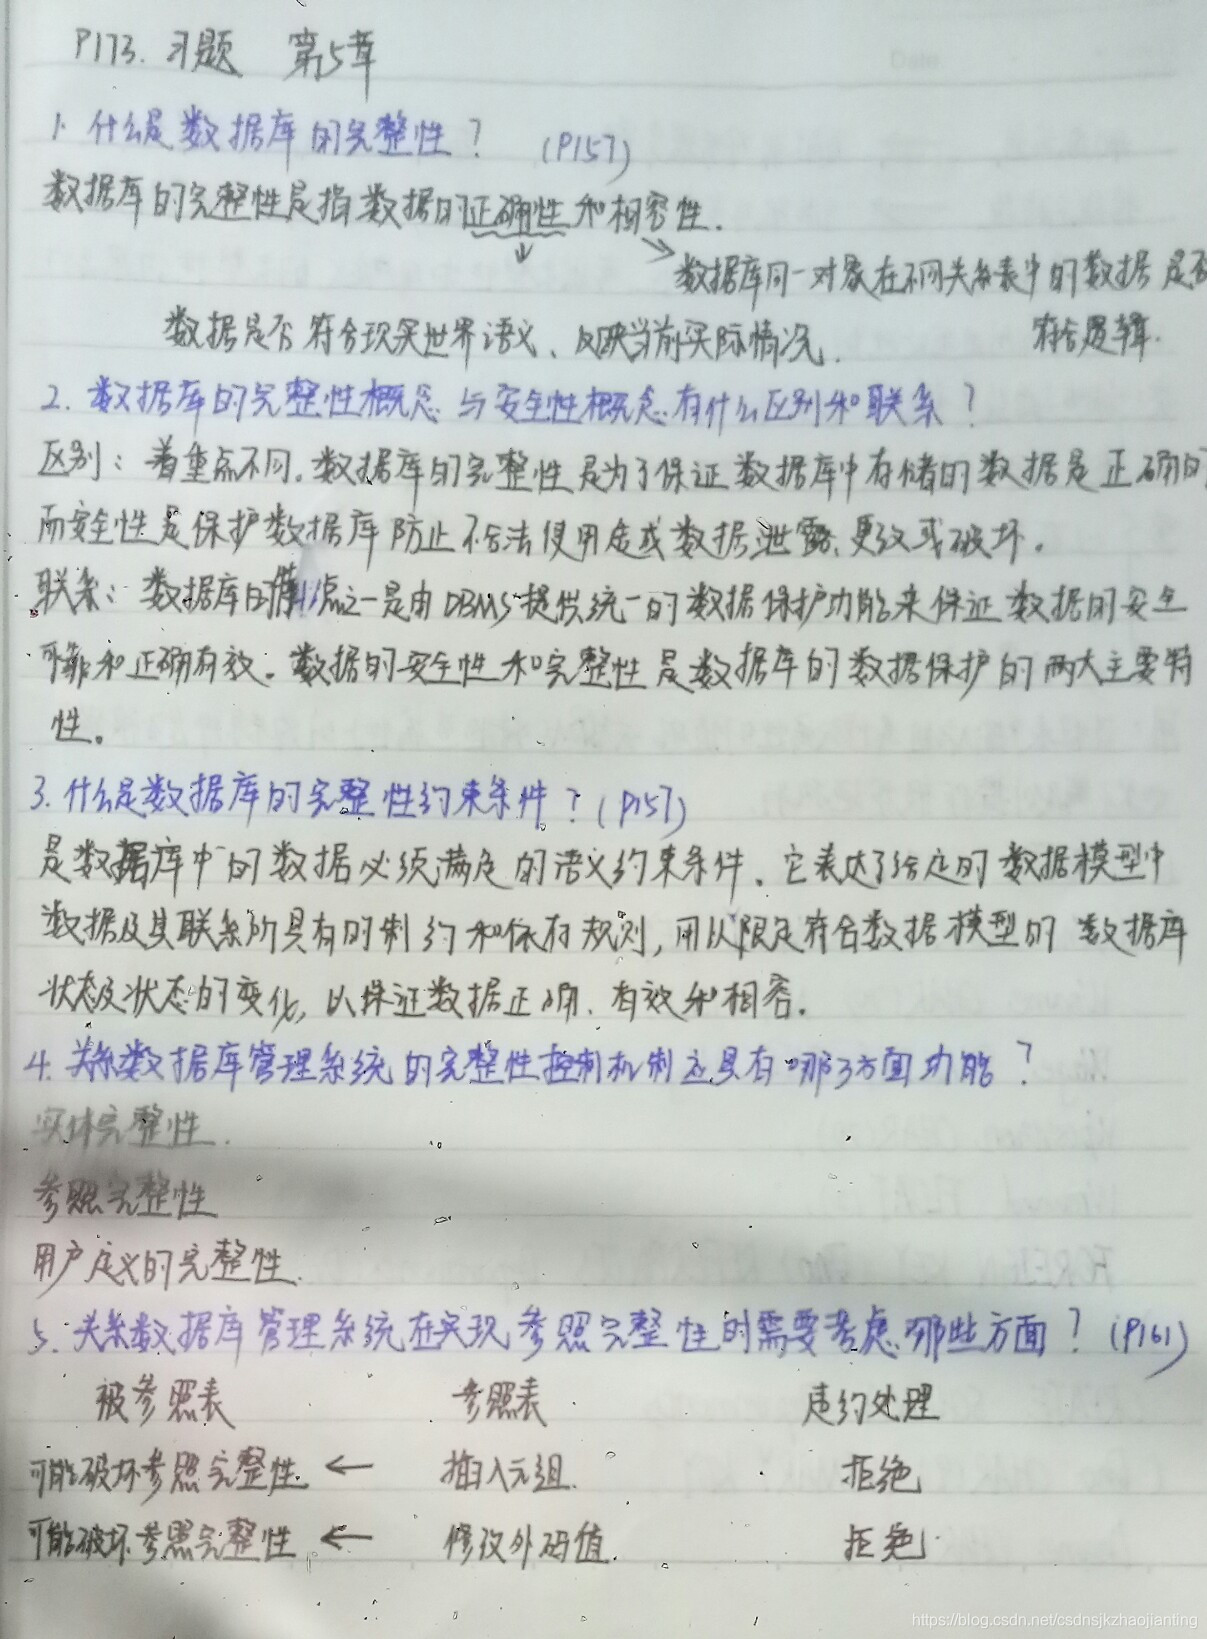 P173. 习题 第5章
1. 什么是数据库的完整性? (P157)
数据库的完整性是指数据的正确性和相容性.
数据库同一对象在不同关系表中的数据是否
数据是否符合现实世界语义、反映当前实际情况. 符合逻辑.
2. 数据库的完整性概念与安全性概念有什么区别和联系?
区别: 着重点不同. 数据库的完整性是为了保证数据库中存储的数据是正确的
而安全性是保护数据库防止不合法使用造成数据泄露、更改或破坏.
联系: 数据库的特点之一是由DBMS提供统一的数据保护功能来保证数据的安全
可靠和正确有效。数据的安全性和完整性是数据库的数据保护的两大主要特
性。
3. 什么是数据库的完整性约束条件? (P157)
是数据库中的数据必须满足的语义约束条件、它表达了给定的数据模型中
数据及其联系所具有的制约和依存规则,用以限定符合数据模型的数据库
状态及状态的变化,以保证数据正确、有效和相容。
4. 关系数据库管理系统的完整性控制机制应具有哪3方面功能?
实体完整性.
参照完整性
用户定义的完整性.
5. 关系数据库管理系统在实现参照完整性时需要考虑哪些方面? (P161)
被参照表 参照表 违约处理
可能破坏参照完整性. ← 插入元组. 拒绝
可能破坏参照完整性 ← 修改外码值. 拒绝
https://blog.csdn.net/csdnsjkzhaojianting